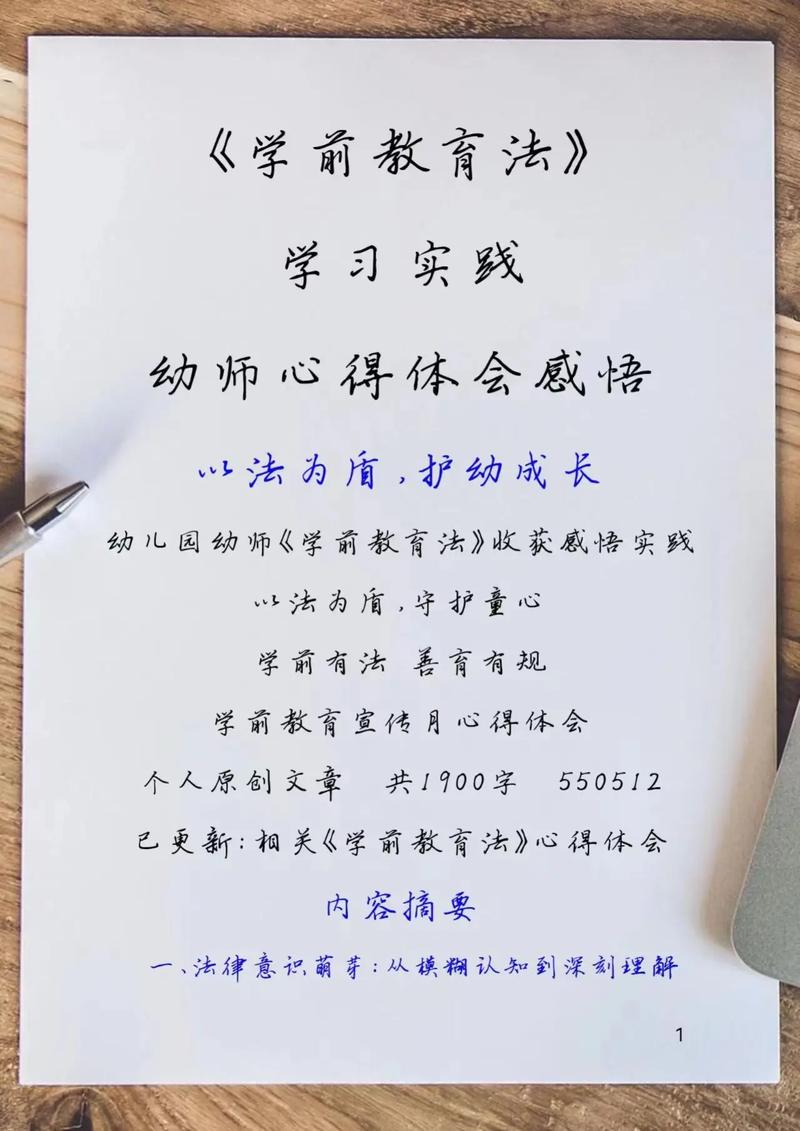 《学前教育法》
学习实践
幼师心得体会感悟
以法为盾,护幼成长
幼儿园幼师《学前教育法》收获感悟实践
以法为盾,守护童心
学前有法 善育有规
学前教育宣传月心得体会
个人原创文章 共1900字 550512
已更新:相关《学前教育法》心得体会
内容摘要
一、法律意识萌芽:从模糊认知到深刻理解
1